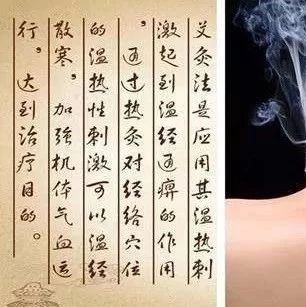 艾灸法是应用其温热刺
激起到温经通痹的作用
，通过热灸对经络穴位
的温热性刺激可以温经
散寒，加强机体气血运
行，达到治疗目的。